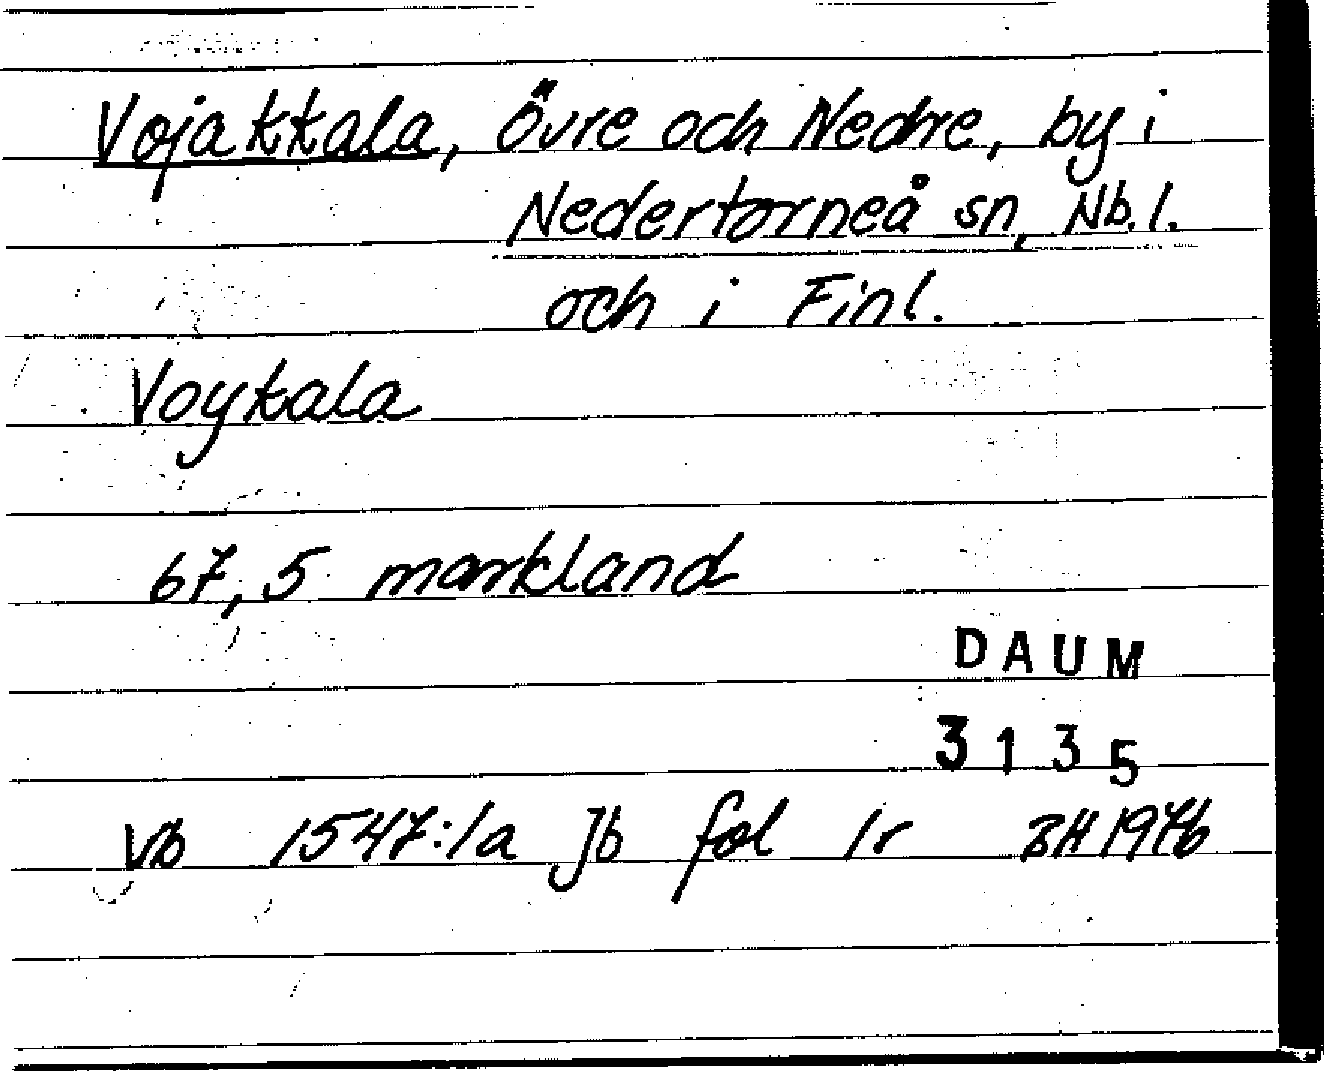 Vojakkala, Övre och Nedre, by i
Nedertorneå sn, Nb.l.
och i Finl.
Voykala
67,5 markland
DAUM
3135
Vb 1547:1a Jb fol 1r BH 1976